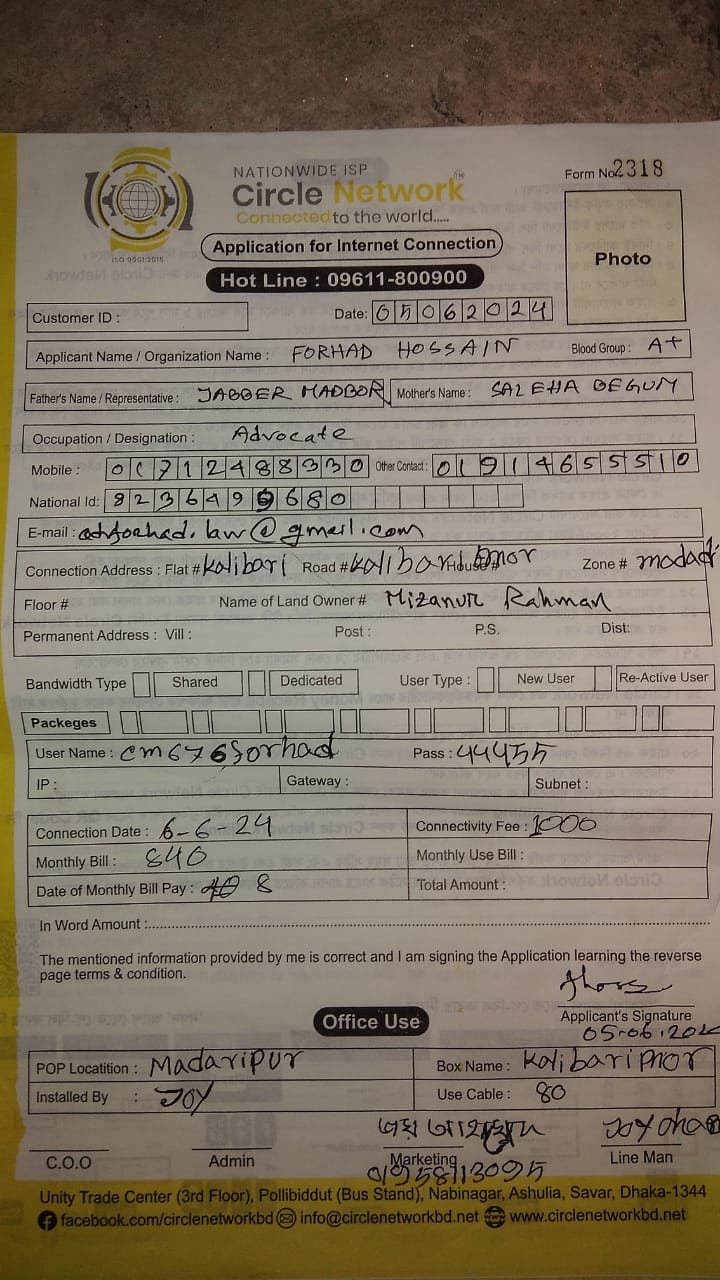 NATIONWIDE ISP
Circle Network TM
Connected to the world.....
ISO 9001:2015
Form No. 2318
Application for Internet Connection
Hot Line : 09611-800900
Photo
Customer ID :
Date: 05062024
Applicant Name / Organization Name : FORHAD HOSSAIN Blood Group : A+
Father's Name / Representative : JABBER MADBOR Mother's Name : SALEHA BEGUM
Occupation / Designation : Advocate
Mobile : 01712488330 Other Contact : 01914655510
National Id: 8236499680
E-mail : advforhad.law@gmail.com
Connection Address : Flat # kalibari Road # kalibari House # mor Zone # madari
Floor # Name of Land Owner # Mizanur Rahman
Permanent Address : Vill : Post : P.S. Dist:
Bandwidth Type Shared Dedicated User Type : New User Re-Active User
Packeges
User Name : cm676forhad Pass : 44455
IP : Gateway : Subnet :
Connection Date : 6-6-24 Connectivity Fee : 1000
Monthly Bill : 840 Monthly Use Bill :
Date of Monthly Bill Pay : 8 Total Amount :
In Word Amount :
The mentioned information provided by me is correct and I am signing the Application learning the reverse
page terms & condition.
Applicant's Signature
05-06.202
Office Use
POP Locatition : Madaripur Box Name : Kalibari mor
Installed By : JOY Use Cable : 80
C.O.O Admin Marketing Line Man
01958113095
Unity Trade Center (3rd Floor), Pollibiddut (Bus Stand), Nabinagar, Ashulia, Savar, Dhaka-1344
facebook.com/circlenetworkbd info@circlenetworkbd.net www.circlenetworkbd.net